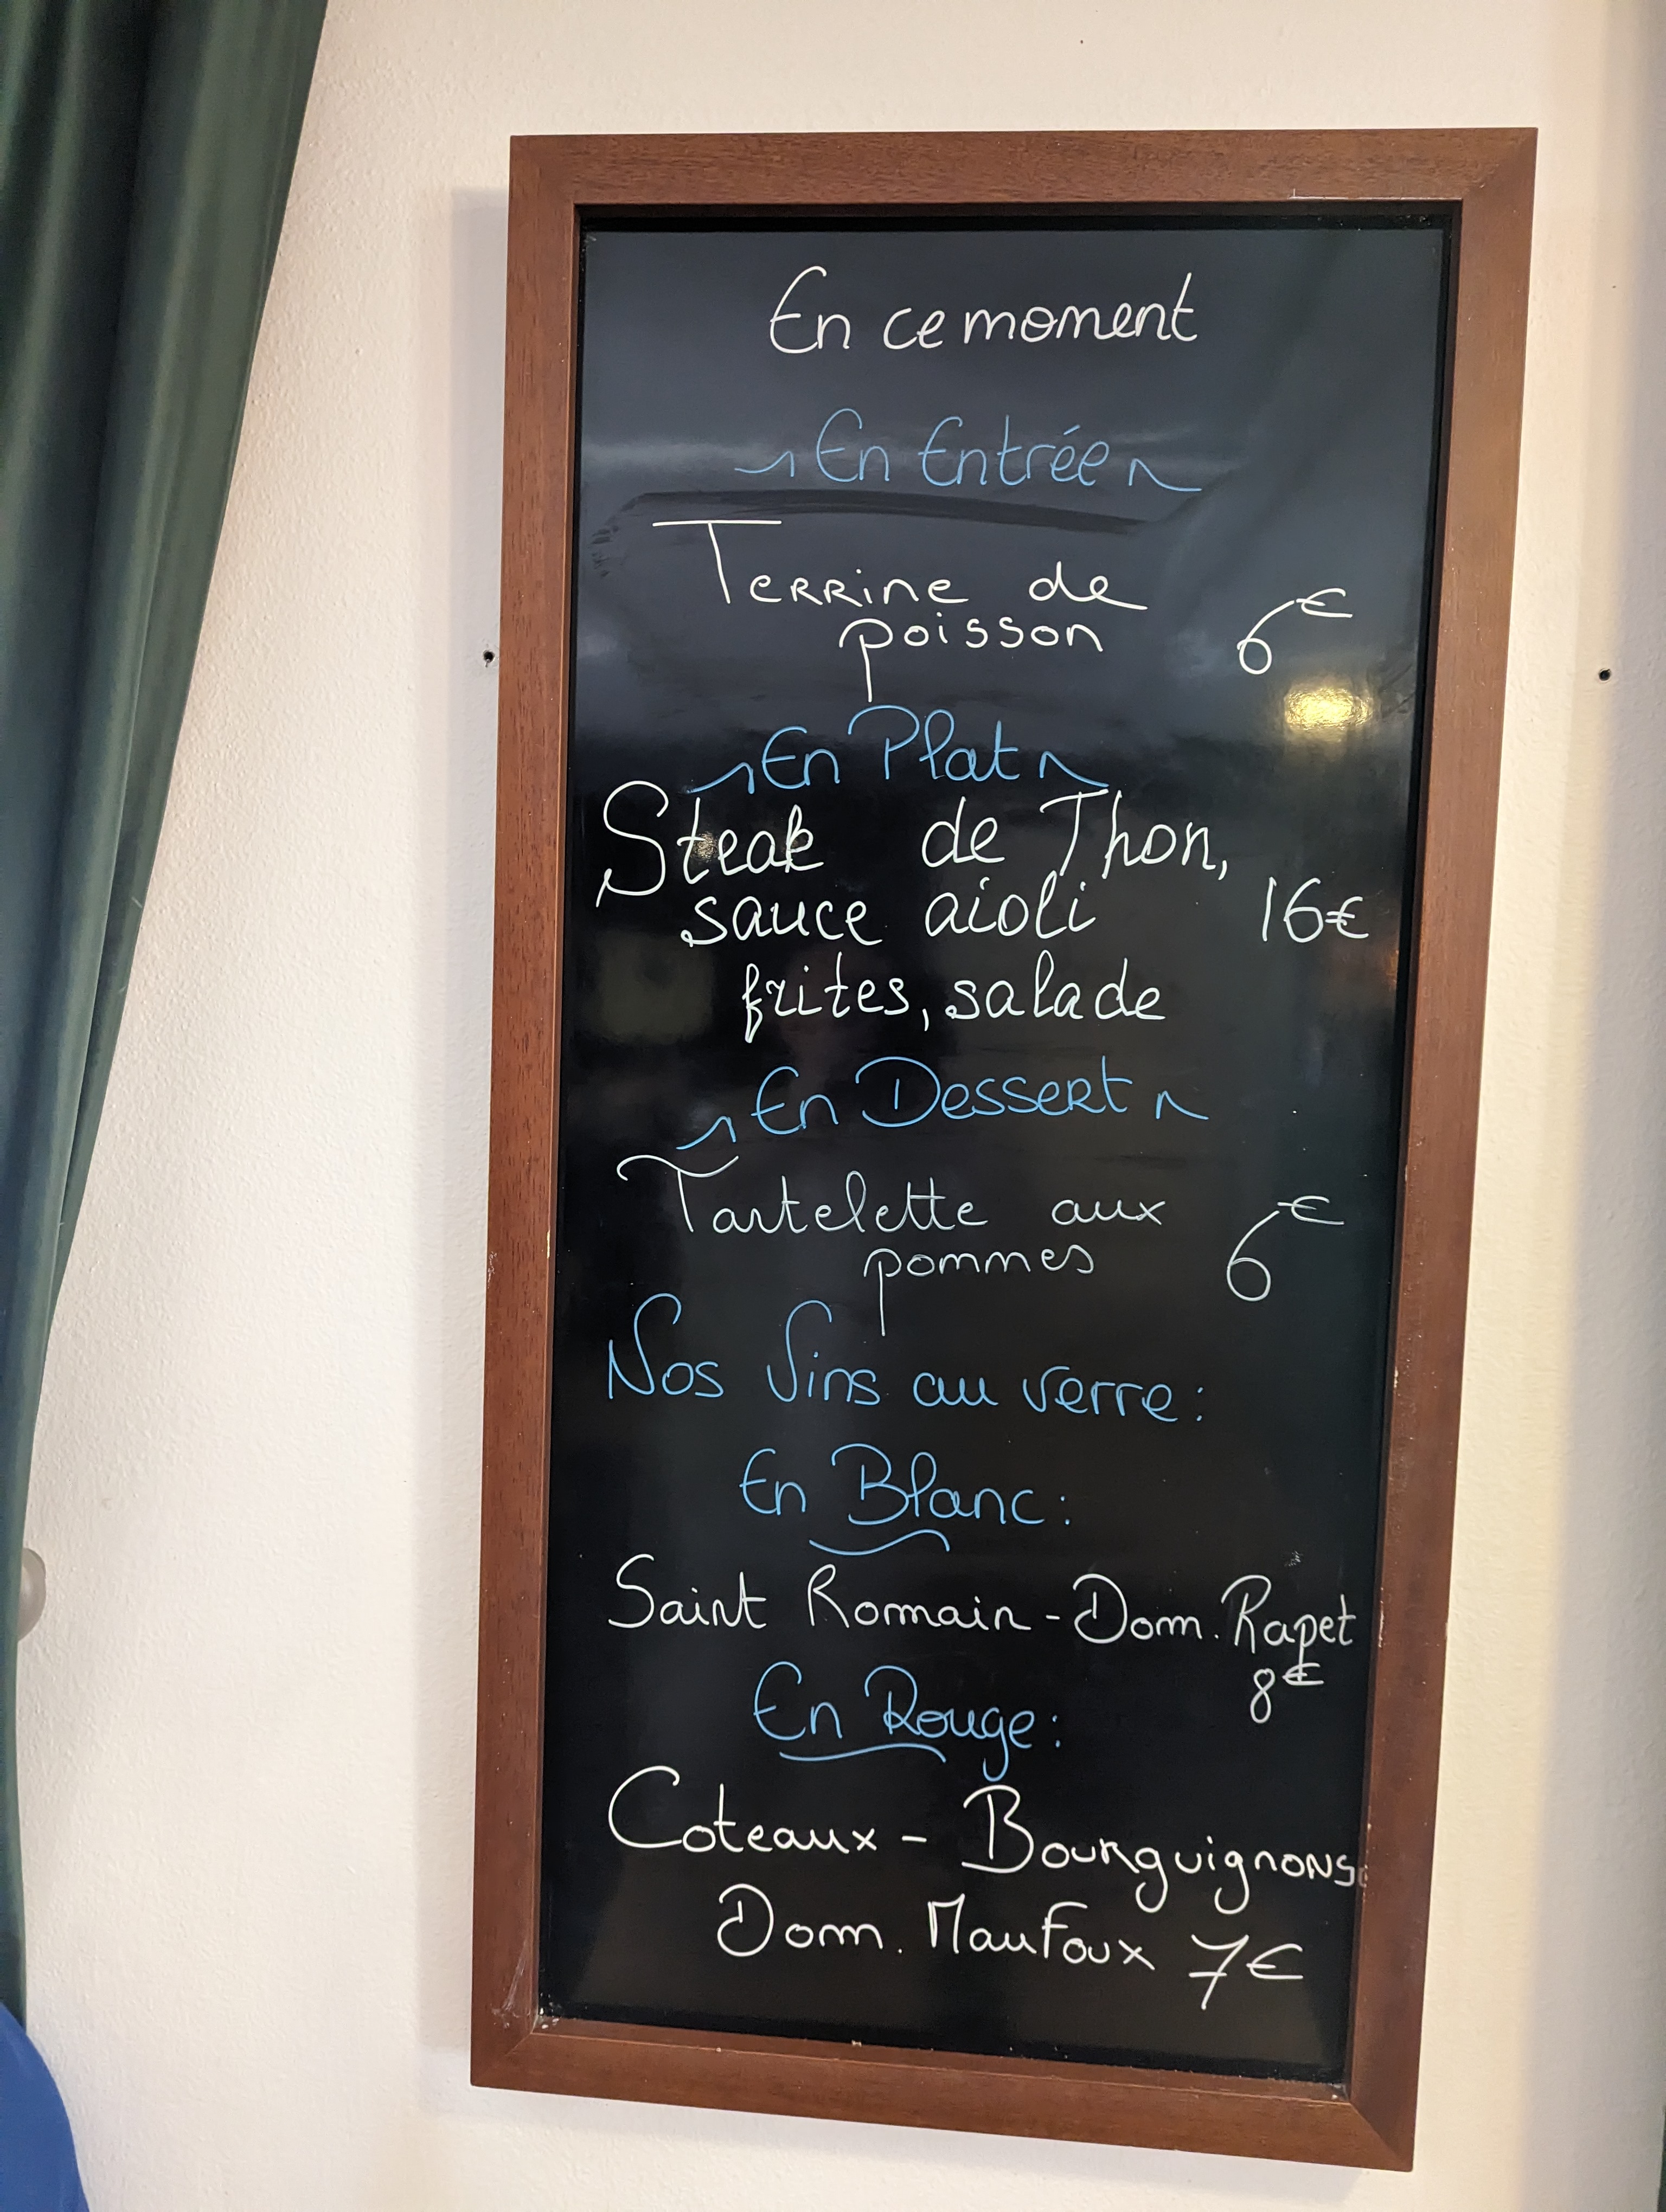 En ce moment
En Entrée
Terrine de
poisson 6€
En Plat
Steak de Thon,
sauce aioli 16€
frites, salade
En Dessert
Tartelette aux
pommes 6€
Nos Vins au verre:
En Blanc:
Saint Romain - Dom. Rapet
8€
En Rouge:
Coteaux - Bourguignons
Dom. Maufoux 7€